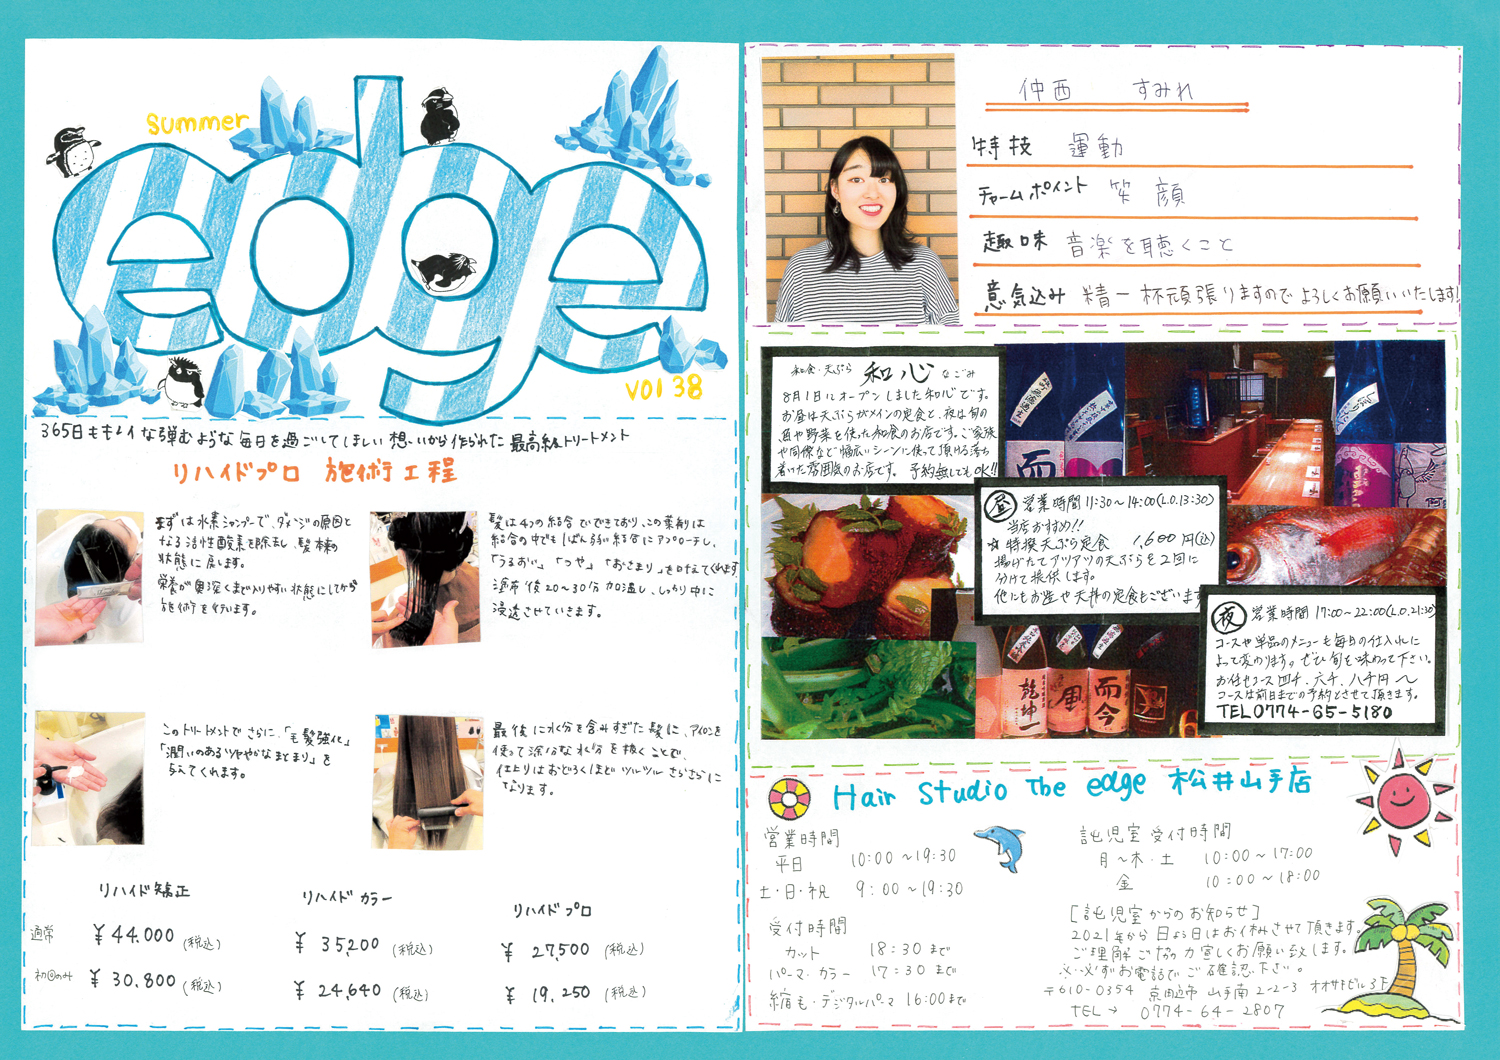 summer
edge
vol 38
365日もキレイな弾むような毎日を過ごしてほしい想いから作られた最高級トリートメント
リハイドプロ 施術工程
まずは水素シャンプーで、ダメージの原因と
なる活性酸素を除去し、髪本来の
状態に戻します。
栄養が奥深くまで入りやすい状態にしてから
施術を行います。
髪は4つの結合でできており、この薬剤は
結合の中でも1ばん弱い結合にアプローチし、
「うるおい」「つや」「おさまり」を叶えてくれます
塗布後20〜30分加温し、しっかり中に
浸透させていきます。
このトリートメントでさらに、「毛髪強化」
「潤いのあるツヤやかなまとまり」を
与えてくれます。
最後に水分を含みすぎた髪に、アイロンを
使って余分な水分を抜くことで、
仕上りはおどろくほどツルツルさらさらに
なります。
リハイド矯正
リハイドカラー
リハイドプロ
通常 ¥44,000 (税込) ¥35,200 (税込) ¥27,500 (税込)
初回のみ ¥30,800 (税込) ¥24,640 (税込) ¥19,250 (税込)
仲西 すみれ
特技 運動
チャームポイント 笑顔
趣味 音楽を聴くこと
意気込み 精一杯頑張りますのでよろしくお願いいたします!
和食・天ぷら 和心 なごみ
8月1日にオープンしました和心です。
お昼は天ぷらがメインの定食と、夜は旬の
魚や野菜を使った和食のお店です。ご家族
や同僚など幅広いシーンに使って頂ける落ち
着いた雰囲気のお店です。 予約無しでもOK!!
昼 営業時間 11:30〜14:00(L.O.13:30)
当店おすすめ!!
☆特撰天ぷら定食 1,600円(込)
揚げたてアツアツの天ぷらを2回に
分けて提供します。
他にもお造や天丼の定食もございます
夜 営業時間 17:00〜22:00(L.O.21:30)
コースや単品のメニューも毎日の仕入れに
よって変わります。ぜひ旬を味わって下さい。
お任せコース 四千、六千、八千円〜
コースは前日までの予約とさせて頂きます。
TEL 0774-65-5180
乾坤一
風
而今
Hair Studio The edge 松井山手店
営業時間
平日 10:00〜19:30
土・日・祝 9:00〜19:30
受付時間
カット 18:30まで
パーマ・カラー 17:30まで
縮毛・デジタルパーマ 16:00まで
託児室受付時間
月〜木・土 10:00〜17:00
金 10:00〜18:00
[託児室からのお知らせ]
2021年から日よう日はお休みさせて頂きます。
ご理解ご協力宜しくお願い致します。
※必ずお電話でご確認下さい。
〒610-0354 京田辺市山手南2-2-3 オオサキビル3F
TEL→ 0774-64-2807